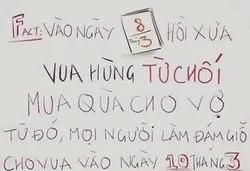 FACT: VÀO NGÀY 8 THÁNG 3 HỒI XƯA
VUA HÙNG TỪ CHỐI
MUA QUÀ CHO VỢ
TỪ ĐÓ, MỌI NGƯỜI LÀM ĐÁM GIỖ
CHO VUA VÀO NGÀY 10 THÁNG 3